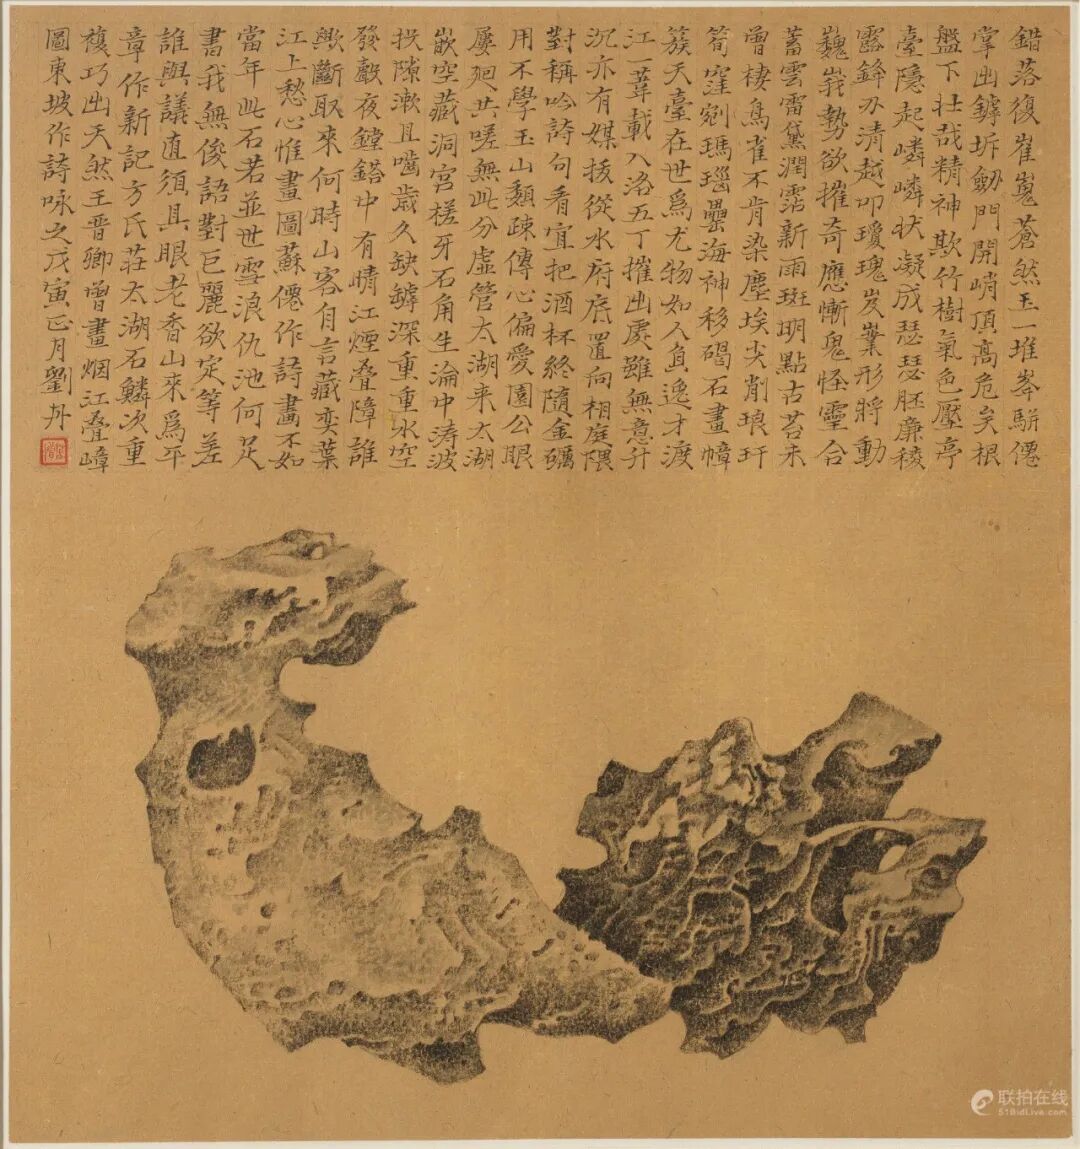 錯落復崔嵬蒼然玉一堆峯駢僊
掌出罅坼劒門開峭頂高危矣根
盤下壯哉精神欺竹樹氣色壓亭
臺隱起嶙嶙狀凝成瑟瑟胚廉稜
露鋒刃清越叩瓊瑰岌嶪形將動
巍峩勢欲摧奇應慚鬼怪靈合
蓄雲雷黛潤霑新雨斑明點古苔未
曾棲鳥雀不肯染塵埃尖削琅玕
筍窪剜瑪瑙罍海神移碣石畫幛
簇天臺在世爲尤物如人負逸才渡
江一葦載入洛五丁摧出處雖無意升
沉亦有媒拔從水府底置向相庭隈
對稱吟詩句看宜把酒杯終隨金礪
用不學玉山頹疎傳心偏愛園公眼
屢迴共嗟無此分虛管太湖来太湖
嵌空藏洞宮槎牙石角生淪中涛波
投隙漱且嚙歲久缺罅深重重水空
發聲夜鏜鎝中有晴江煙疊障誰
歟斷取來何時山客自言藏奕葉
江上愁心惟畫圖蘇僊作詩畫不如
當年此石若並世雪浪仇池何足
書我無俊語對巨麗欲定等差
誰與議直須具眼老香山來爲平
章作新記方氏莊太湖石鱗次重
複巧出天然王晋卿曾畫烟江叠嶂
圖東坡作詩咏之戊寅正月劉丹
联拍在线
51BidLive.com